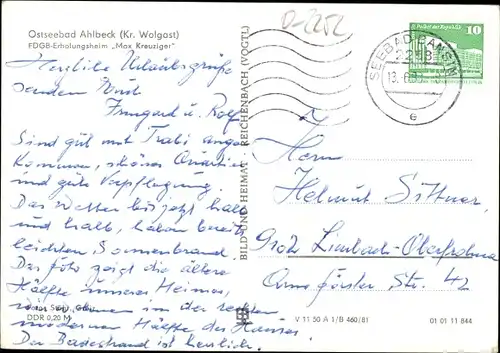 D-2252
Ostseebad Ahlbeck (Kr. Wolgast)
FDGB-Erholungsheim „Max Kreuziger"
Herzliche Urlaubsgrüße
senden Euch
Irmgard u. Rolf
Sind gut mit Trabi ange-
kommen, schönes Quartier
und gute Verpflegung.
Das Wetter bis jetzt halb
und halb, haben bereits
leichten Sonnenbrand.
Das Foto zeigt die ältere
Hälfte unseres Heimes,
wohnen in der rechten
modernen Hälfte des Hauses.
Der Badestrand ist herrlich.
DDR 0,20 M
BILD UND HEIMAT REICHENBACH (VOGTL)
V 11 50 A 1/B 460/81
01 01 11 844
SEEBAD BANSIN
2253
e
10
Herrn
Helmut Sittner,
9102 Limbach-Oberfrohna
Str. 42